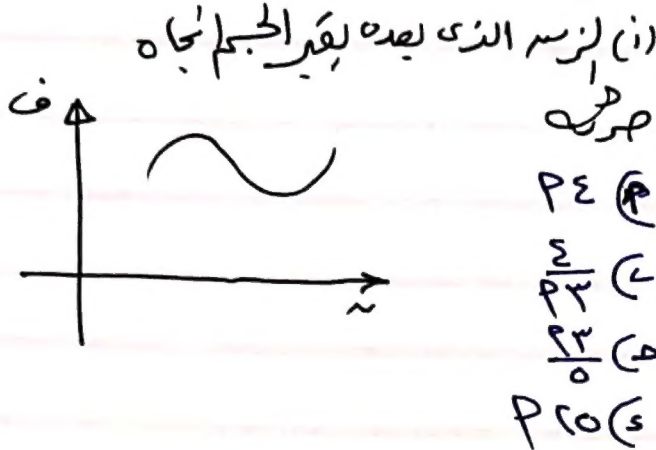 (i) الزمن الذى بعده يغير الجسم اتجاه
حركته
ف
ن
P ٤ (P
٤ / P ٣ (ب
P ٣ / ٥ (ح
P ٢٥ (د